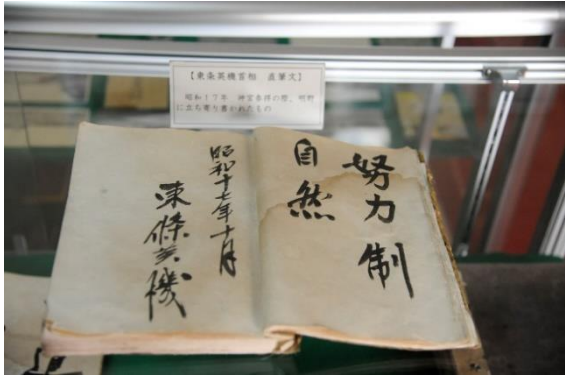 【東条英機首相 直筆文】
昭和17年 神宮参拝の際、明野
に立ち寄り書かれたもの
努力制
自然
昭和十七年十月
東條英機